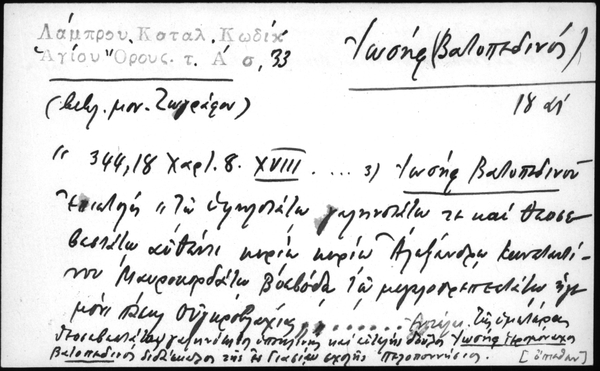 Λάμπρου Καταλ. Κωδίκ
Ἁγίου Ὄρους. τ. Α΄ σ. 33
Ἰωσήφ (Βατοπεδινός)
(βιβλ. μον. Ζωγράφου)
18 αἰ
" 344,18 Χαρτ. 8. XVIII .... 3) Ἰωσήφ Βατοπεδινοῦ
Ἐπιστολή "Τῷ ὑψηλοτάτῳ γαληνοτάτῳ τε καὶ θεοσε
βεστάτῳ αὐθέντῃ κυρίῳ κυρίῳ Ἀλεξάνδρῳ Κωνσταντί-
νου Μαυροκορδάτῳ Βοεβόδᾳ τῷ μεγαλοπρεπεστάτῳ ἡγε
μόνι πάσης Οὐγκροβλαχίας ........ τῆς ὑμετέρας
θεοσεβεστάτης γαληνότητος καὶ εὐτελὴς δοῦλος Ἰωσήφ Ἱερομόναχος
Βατοπεδινός διδάσκαλος τῆς ἐν Γιασίῳ σχολῆς Πελοποννήσιος. [ὄπισθεν]